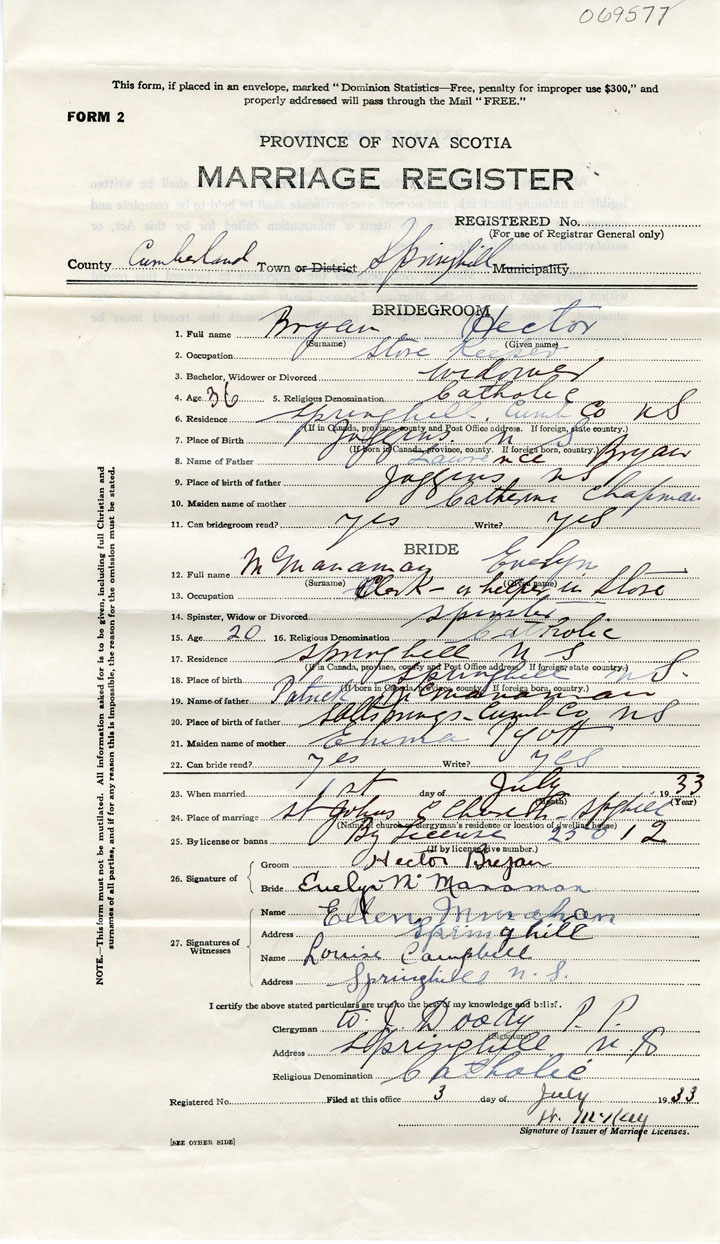 069577
This form, if placed in an envelope, marked "Dominion Statistics—Free, penalty for improper use $300," and
properly addressed will pass through the Mail "FREE."
FORM 2
PROVINCE OF NOVA SCOTIA
MARRIAGE REGISTER
REGISTERED No.
(For use of Registrar General only)
County Cumberland Town or District Springhill Municipality
BRIDEGROOM
1. Full name Bryan Hector
(Surname) (Given name)
2. Occupation Store Keeper
3. Bachelor, Widower or Divorced widower
4. Age 36 5. Religious Denomination Catholic
6. Residence Springhill, Cumb Co N S
(If in Canada, province, county and Post Office address. If foreign, state country.)
7. Place of Birth Joggins. N S
(If born in Canada, province, county. If foreign born, country.)
8. Name of Father Lawrence Bryan
9. Place of birth of father Joggins NS
10. Maiden name of mother Catherine Chapman
11. Can bridegroom read? yes Write? yes
BRIDE
12. Full name McManaman Evelyn
(Surname) (Given name)
13. Occupation Clerk - or helper in Store
14. Spinster, Widow or Divorced spinster
15. Age 20 16. Religious Denomination Catholic
17. Residence Springhill N S
(If in Canada, province, county and Post Office address. If foreign, state country.)
18. Place of birth Springhill N S.
(If born in Canada, province, county. If foreign born, country.)
19. Name of father Patrick McManaman
20. Place of birth of father Saltsprings - Cumb Co NS
21. Maiden name of mother Emma Pyott
22. Can bride read? yes Write? yes
23. When married 1st day of July 1933
(Month) (Year)
24. Place of marriage St Johns Church - Spghill
(Name of church, clergyman's residence or location of dwelling house)
25. By license or banns By License 25012
(If by license give number.)
26. Signature of
Groom Hector Bryan
Bride Evelyn McManaman
27. Signatures of Witnesses
Name Eileen
Address Springhill
Name Louise Campbell
Address Springhill N. S.
I certify the above stated particulars are true to the best of my knowledge and belief.
Clergyman Doody P. P.
(Signature)
Address Springhill N S
Religious Denomination Catholic
Registered No. Filed at this office 3 day of July 1933
H. McKay
Signature of Issuer of Marriage Licenses.
[SEE OTHER SIDE]
NOTE.—This form must not be mutilated. All information asked for is to be given, including full Christian and
surnames of all parties, and if for any reason this is impossible, the reason for the omission must be stated.